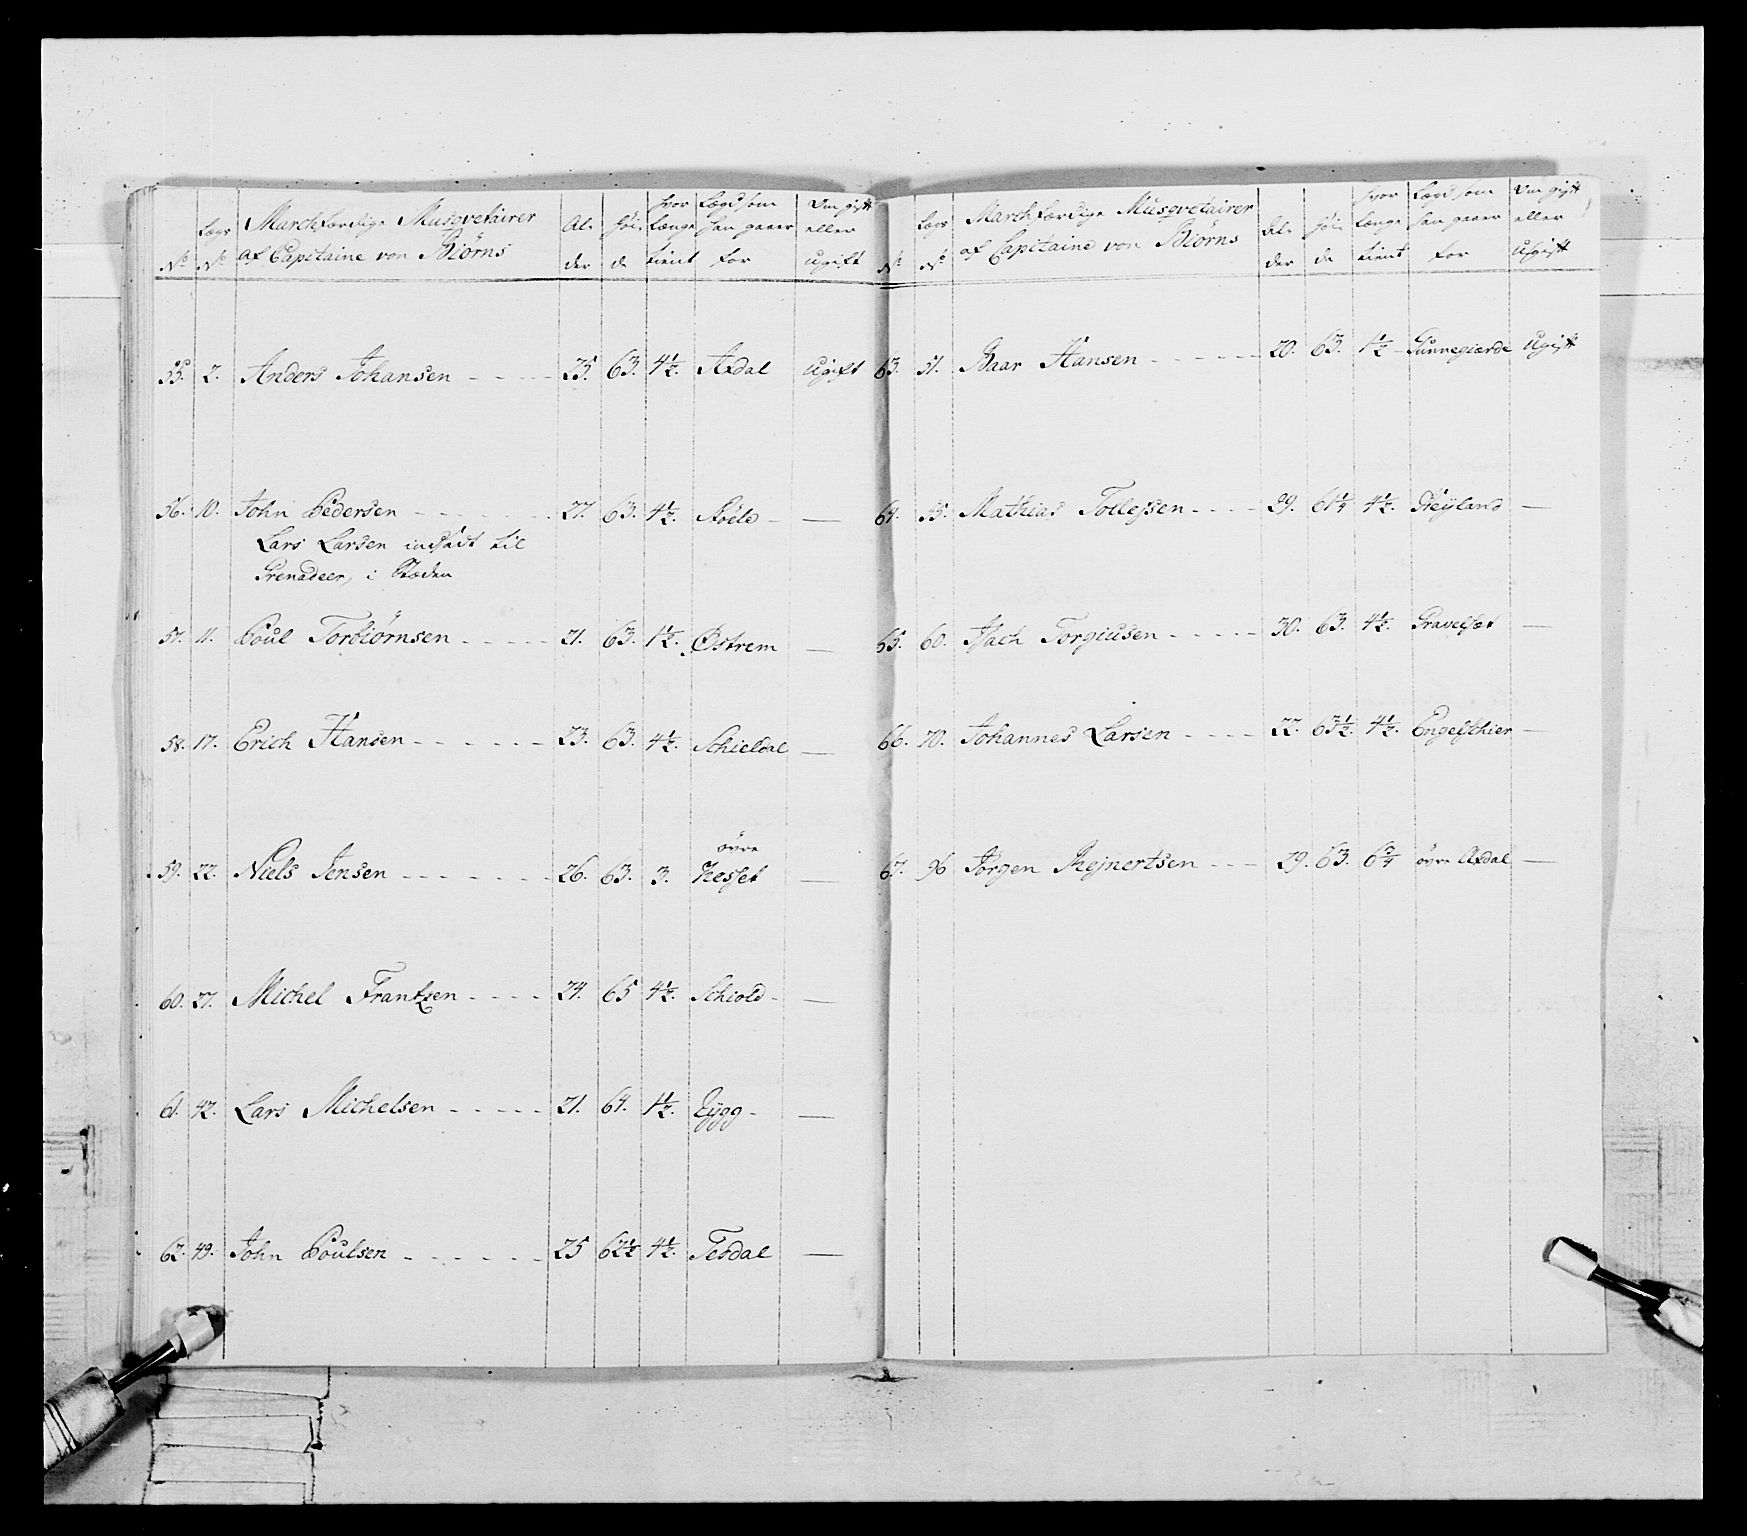 N° Lægs N° Marchfærdige Musqvetairer af Capitaine von Biörns Al- der Höi- de hvor længe tient Lægd som han gaaer for Om gift eller ugift
55. 2. Anders Johansen 25. 63. 4½. Axdal Ugift
56. 10. John Pedersen 27. 63. 4½. Støle —
Lars Larsen indsadt til
Grenadeer, i Stæden
57. 11. Poul Torbiørnsen 21. 63. 1½. Østrem —
58. 17. Erich Hansen 23. 63. 4½. Schieldal —
59. 22. Niels Jensen 26. 63. 3. övre Hesset —
60. 27. Michel Frantzen 24. 65 4½. Schiold —
61. 42. Lars Michelsen 21. 64. 1½. Eÿgg —
62. 49. John Poulsen 25 62½ 4½. Tesdal —
N° Lægs N° Marchfærdige Musqvetairer af Capitaine von Biörns Al- der Höi- de hvor længe tient Lægd som han gaaer for Om gift eller Ugift
63. 51. Baar Hansen 20. 63. 1½ Gunnegierde Ugift
64. 55. Mathias Tollefsen 29. 61¼ 4½. Heÿland —
65. 60. Isach Torgiusen 30. 63. 4½. Gravelset —
66. 70. Johannes Larsen 22. 63½. 4½. Engelschier —
67. 96 Jörgen Rejnertsen 29. 63. 6¾ övre Axdal —